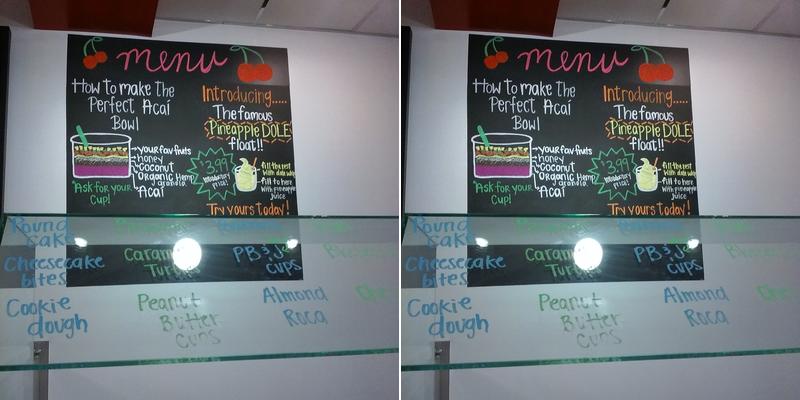 menu
How to make the
Perfect Acaí
Bowl
your fav fruits
honey
Coconut
Organic Hemp
granola
Acaí
"Ask for your
Cup!
Introducing.....
The famous
Pineapple DOLE
float!!
$3.99
Introductory
Price!
fill the rest
fill to here
with pineapple
juice
Try yours today!
Pound
cake
Cheesecake
bites
Cookie
dough
Caramel
Peanut
Butter
Cups
PB & J
cups
Almond
Roca
menu
How to make the
Perfect Acaí
Bowl
your fav fruits
honey
Coconut
Organic Hemp
granola
Acaí
"Ask for your
Cup!
Introducing.....
The famous
Pineapple DOLE
float!!
$3.99
Introductory
Price!
fill the rest
fill to here
with pineapple
juice
Try yours today!
Pound
cake
Cheesecake
bites
Cookie
dough
Caramel
Peanut
Butter
Cups
PB & J
cups
Almond
Roca